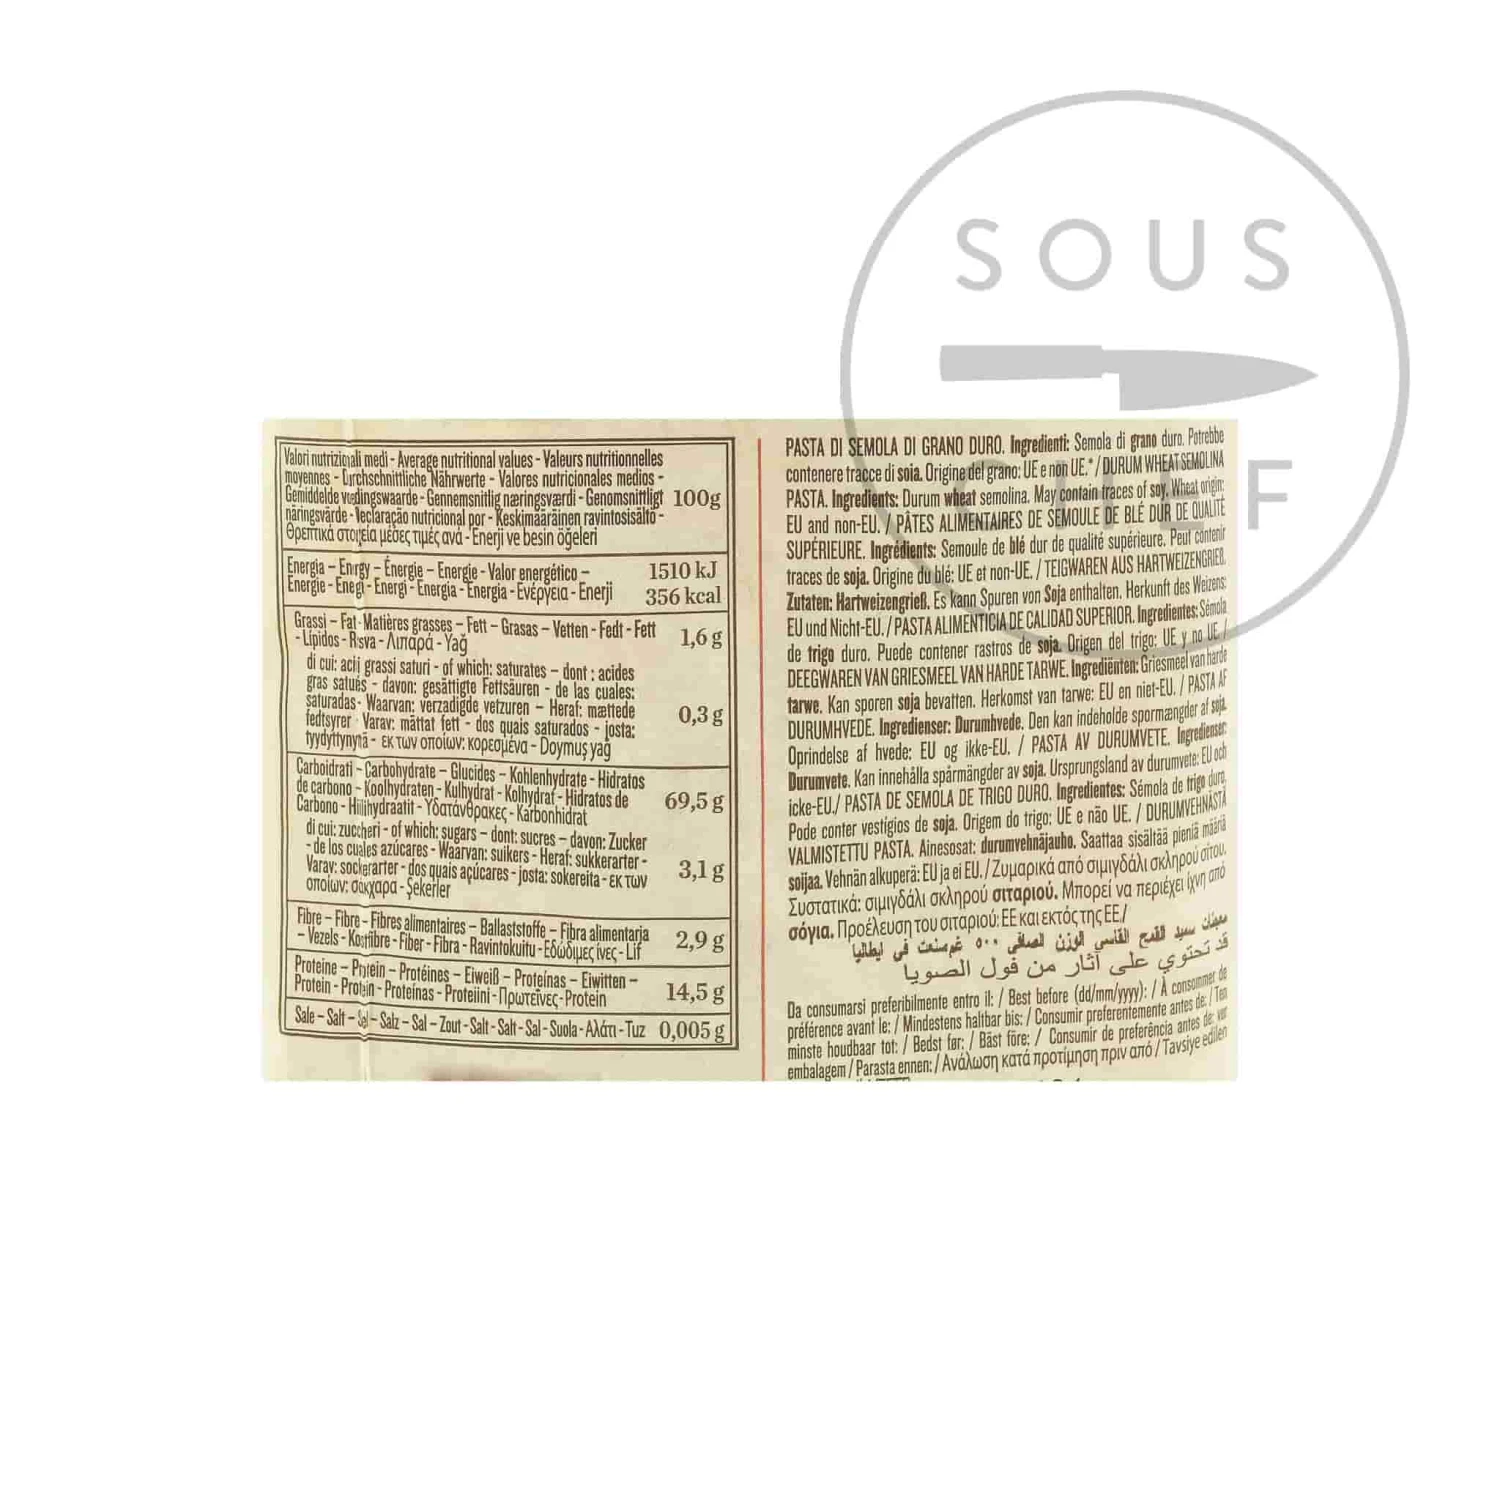 SOUS
CHEF
Valori nutrizionali medi - Average nutritional values - Valeurs nutritionnelles
moyennes - Durchschnittliche Nährwerte - Valores nutricionales medios -
Gemiddelde voedingswaarde - Gennemsnitlig næringsværdi - Genomsnittligt 100g
näringsvärde - Declaração nutricional por - Keskimääräinen ravintosisältö -
Θρεπτικά στοιχεία μέσες τιμές ανά - Enerji ve besin öğeleri
Energia – Energy – Énergie – Energie - Valor energético – 1510 kJ
Energie - Energi - Energi - Energia - Energia - Ενέργεια - Enerji 356 kcal
Grassi – Fat - Matières grasses – Fett – Grasas – Vetten - Fedt - Fett 1,6 g
- Lípidos - Rasva - Λιπαρά - Yağ
di cui: acidi grassi saturi - of which: saturates – dont : acides
gras saturés - davon: gesättigte Fettsäuren - de las cuales:
saturadas - Waarvan: verzadigde vetzuren – Heraf: mættede 0,3 g
fedtsyrer - Varav: mättat fett - dos quais saturados - josta:
tyydyttynyttä - εκ των οποίων: κορεσμένα - Doymuş yağ
Carboidrati – Carbohydrate – Glucides – Kohlenhydrate - Hidratos
de carbono - Koolhydraten - Kulhydrat - Kolhydrat - Hidratos de 69,5 g
Carbono - Hiilihydraatit - Υδατάνθρακες - Karbonhidrat
di cui: zuccheri - of which: sugars – dont: sucres – davon: Zucker
- de los cuales azúcares - Waarvan: suikers - Heraf: sukkerarter - 3,1 g
Varav: sockerarter - dos quais açúcares - josta: sokereita - εκ των
οποίων: σάκχαρα - Şekerler
Fibre – Fibre – Fibres alimentaires – Ballaststoffe – Fibra alimentaria 2,9 g
– Vezels - Kostfibre - Fiber - Fibra - Ravintokuitu - Εδώδιμες ίνες - Lif
Proteine – Protein – Protéines – Eiweiß – Proteínas – Eiwitten – 14,5 g
Protein - Protein - Proteínas - Proteiini - Πρωτεΐνες - Protein
Sale – Salt – Sel – Salz – Sal – Zout - Salt - Salt - Sal - Suola - Αλάτι - Tuz 0,005 g
PASTA DI SEMOLA DI GRANO DURO. Ingredienti: Semola di grano duro. Potrebbe
contenere tracce di soia. Origine del grano: UE e non UE.* / DURUM WHEAT SEMOLINA
PASTA. Ingredients: Durum wheat semolina. May contain traces of soy. Wheat origin:
EU and non-EU. / PÂTES ALIMENTAIRES DE SEMOULE DE BLÉ DUR DE QUALITÉ
SUPÉRIEURE. Ingrédients: Semoule de blé dur de qualité supérieure. Peut contenir
traces de soja. Origine du blé: UE et non-UE. / TEIGWAREN AUS HARTWEIZENGRIEß.
Zutaten: Hartweizengrieß. Es kann Spuren von Soja enthalten. Herkunft des Weizens:
EU und Nicht-EU. / PASTA ALIMENTICIA DE CALIDAD SUPERIOR. Ingredientes: Sémola
de trigo duro. Puede contener rastros de soja. Origen del trigo: UE y no UE. /
DEEGWAREN VAN GRIESMEEL VAN HARDE TARWE. Ingrediënten: Griesmeel van harde
tarwe. Kan sporen soja bevatten. Herkomst van tarwe: EU en niet-EU. / PASTA AF
DURUMHVEDE. Ingredienser: Durumhvede. Den kan indeholde spormængder af soja.
Oprindelse af hvede: EU og ikke-EU. / PASTA AV DURUMVETE. Ingredienser:
Durumvete. Kan innehålla spårmängder av soja. Ursprungsland av durumvete: EU och
icke-EU./ PASTA DE SEMOLA DE TRIGO DURO. Ingredientes: Sémola de trigo duro.
Pode conter vestígios de soja. Origem do trigo: UE e não UE. / DURUMVEHNÄSTÄ
VALMISTETTU PASTA. Ainesosat: durumvehnäjauho. Saattaa sisältää pieniä määriä
soijaa. Vehnän alkuperä: EU ja ei EU. / Ζυμαρικά από σιμιγδάλι σκληρού σίτου.
Συστατικά: σιμιγδάλι σκληρού σιταριού. Μπορεί να περιέχει ίχνη από
σόγια. Προέλευση του σιταριού: ΕΕ και εκτός της ΕΕ/
معجنات سميد القمح القاسي الوزن الصافي ٥٠٠ غم صنعت في ايطاليا
قد تحتوي على آثار من فول الصويا
Da consumarsi preferibilmente entro il: / Best before (dd/mm/yyyy): / À consommer de
préférence avant le: / Mindestens haltbar bis: / Consumir preferentemente antes de: / Ten
minste houdbaar tot: / Bedst før: / Bäst före: / Consumir de preferência antes de: ver
embalagem / Parasta ennen: / Ανάλωση κατά προτίμηση πριν από / Tavsiye edilen